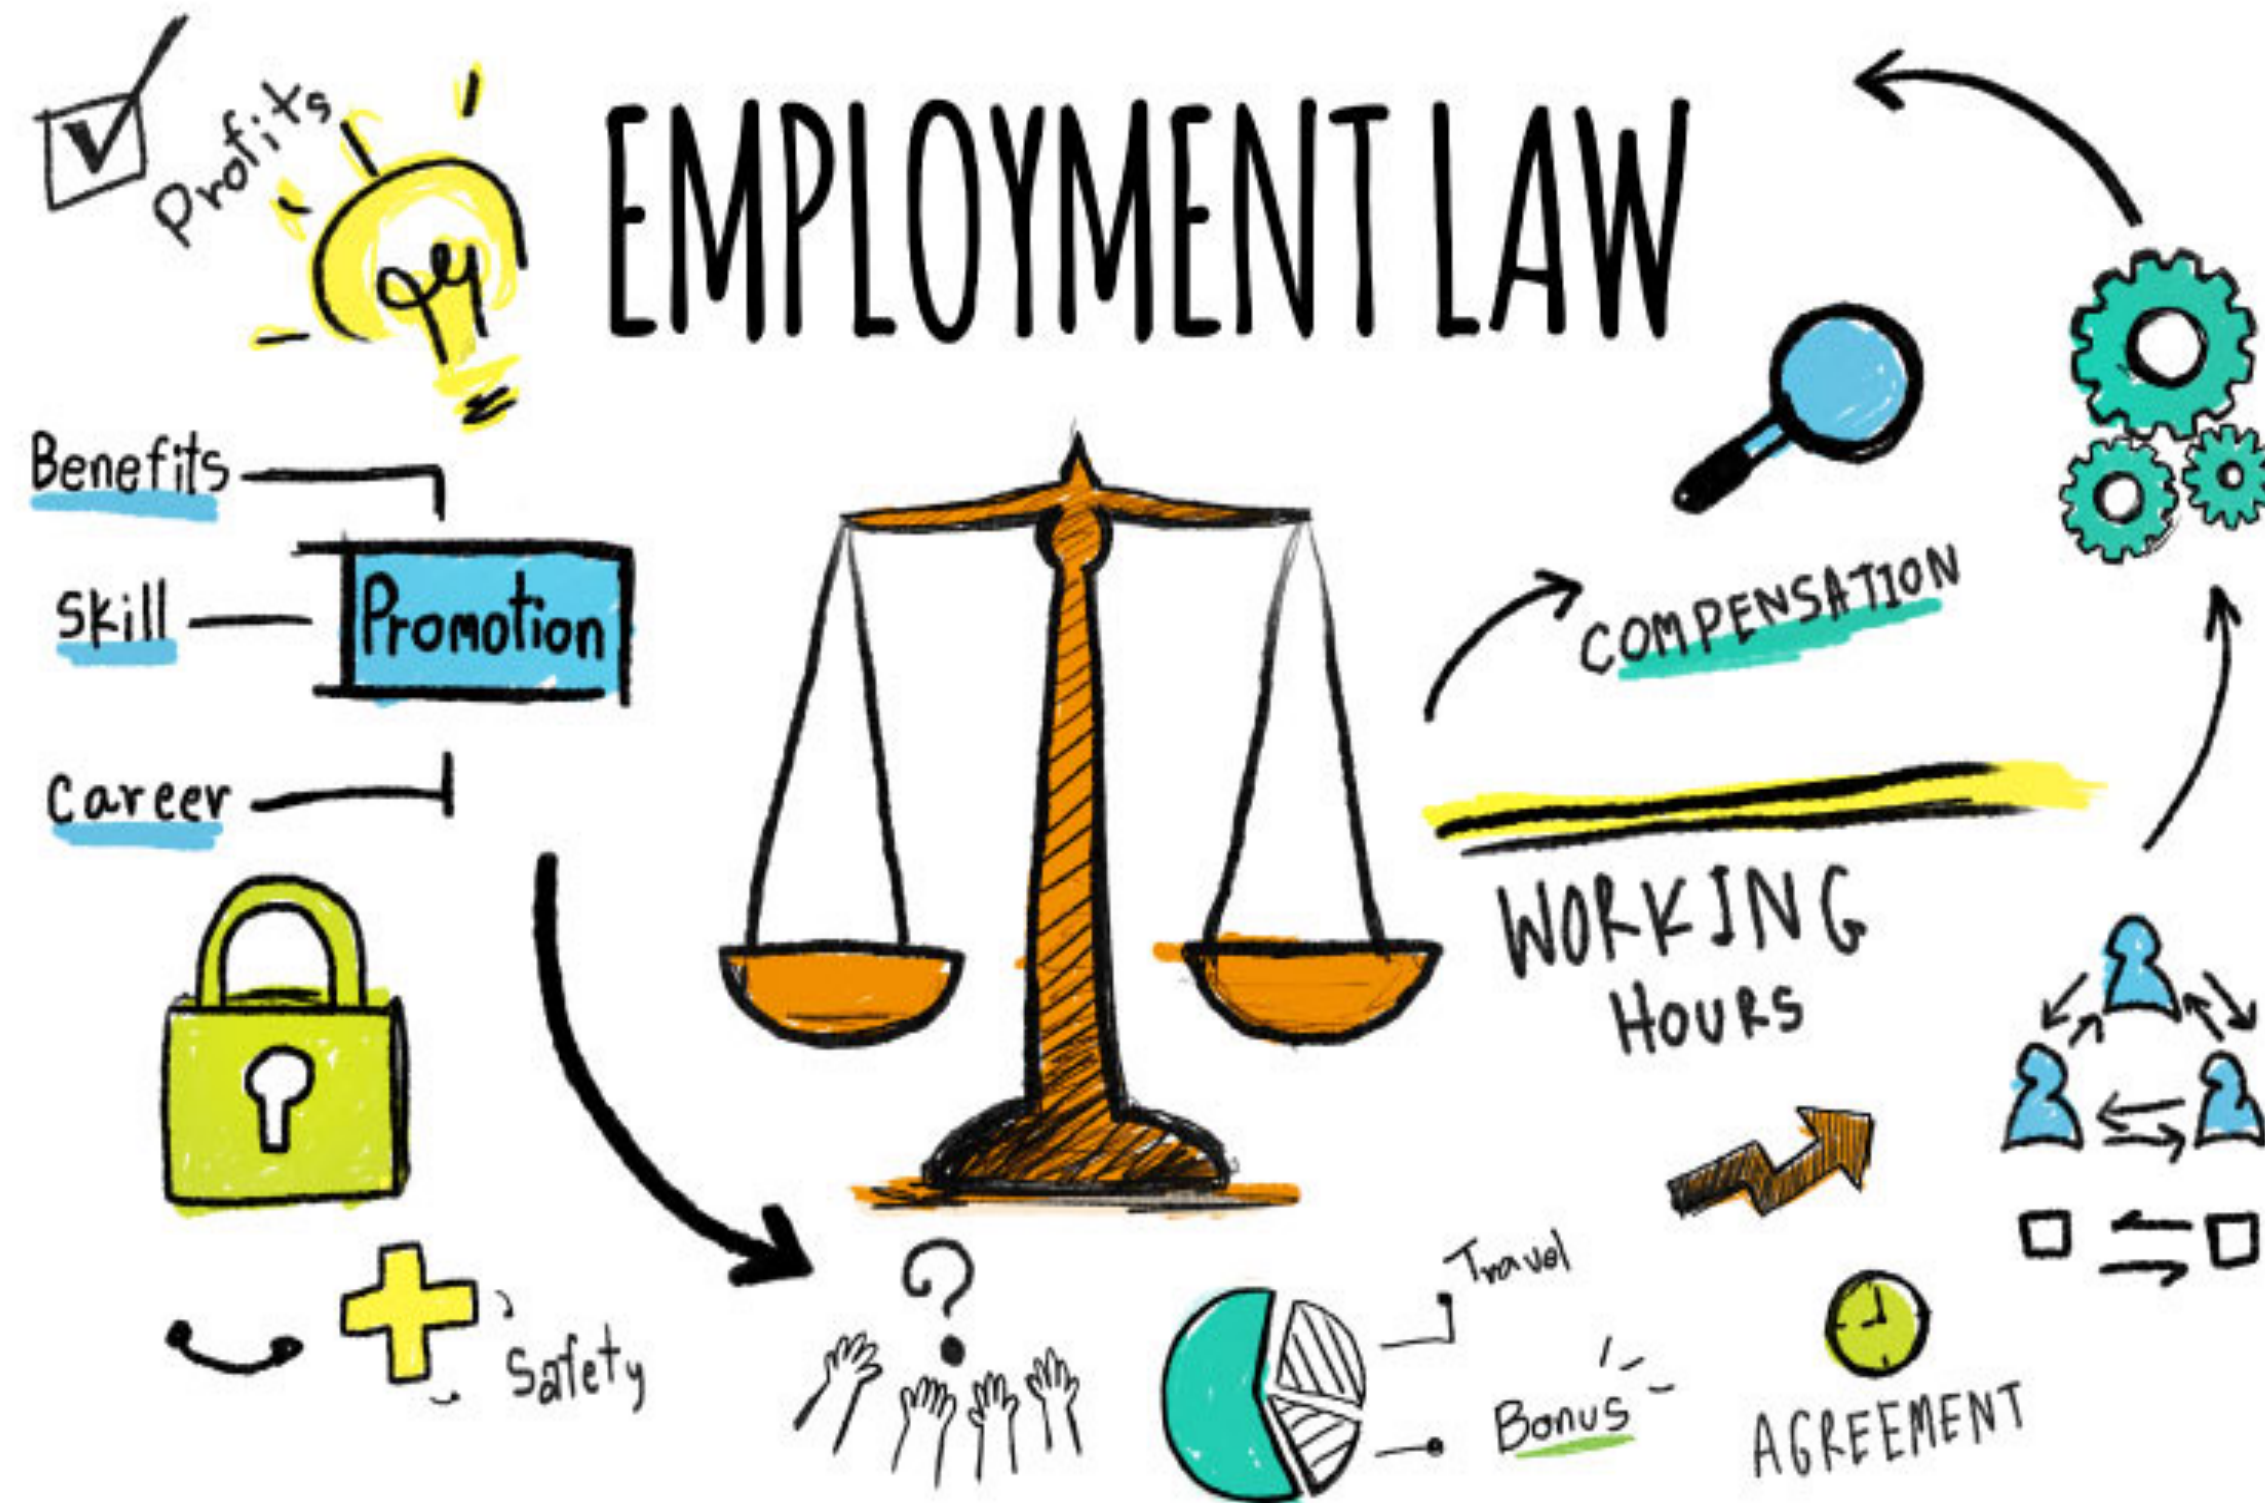 Profits
EMPLOYMENT LAW
Benefits
Skill
Promotion
Career
COMPENSATION
WORKING
HOURS
Safety
?
Travel
Bonus
AGREEMENT